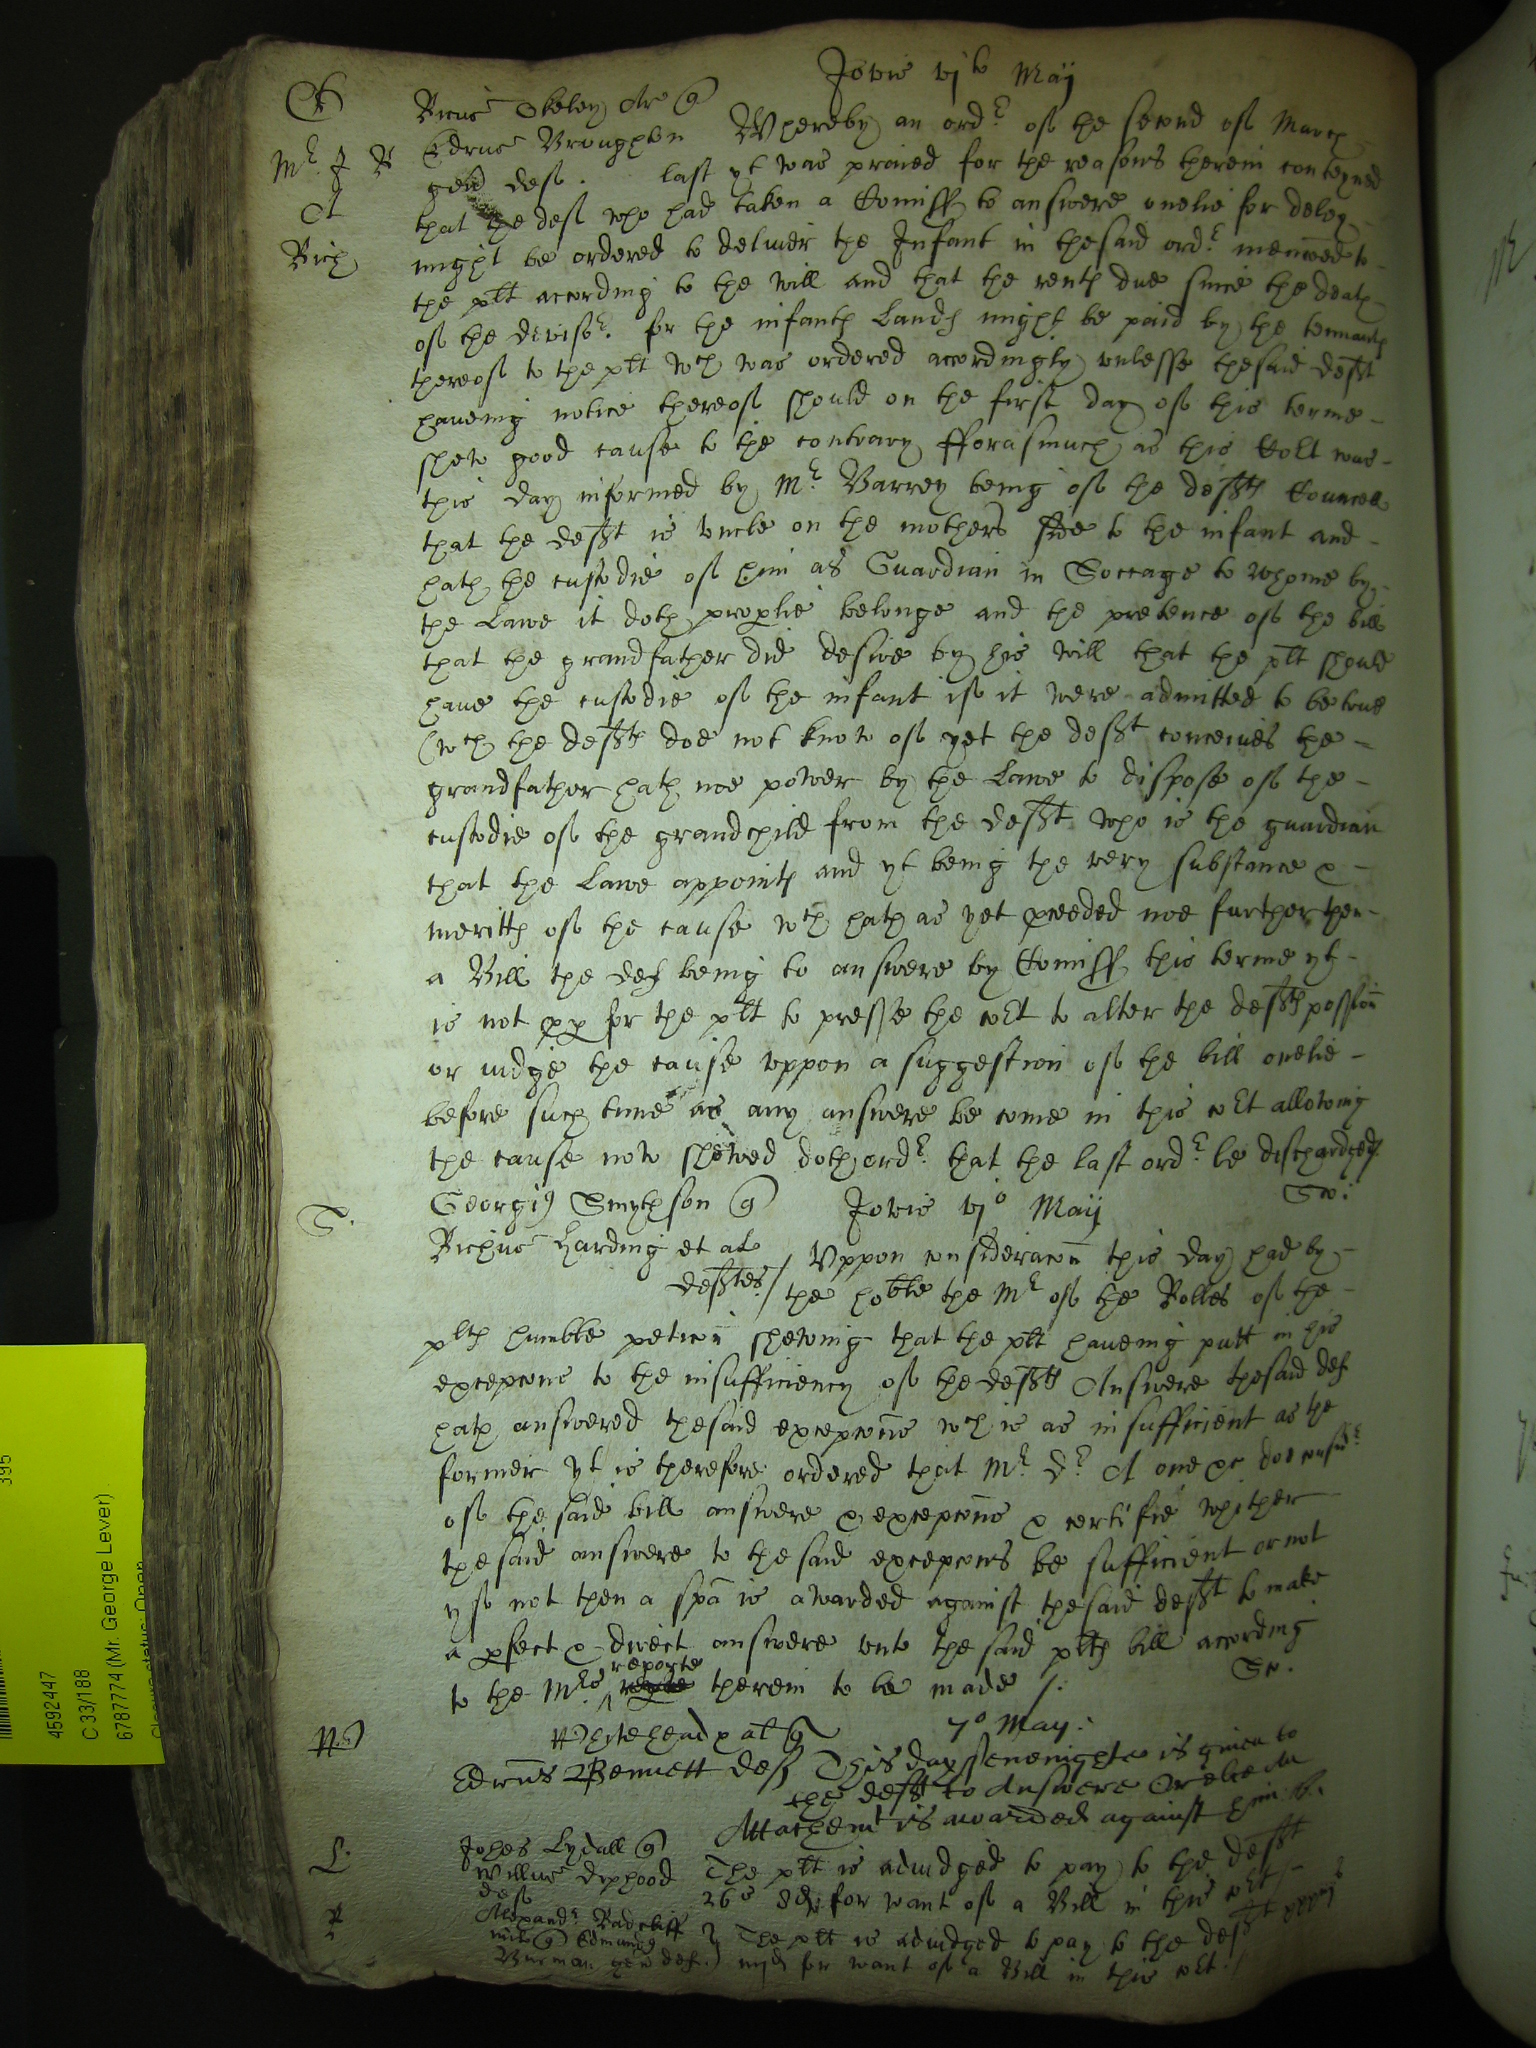 Jovis vjto Maij
Ricus Okeley Ar q
Edrus Broughton Whereby an ordr of the second of March
Mr J R
gen def. last yt was praied for the reasons therein conteyned
A
that the def who had taken a Comiss to answere onelie for deley
Rich
might be ordered to deliver the Infant in thesaid ordr menconed to
the plt according to the will and that the rents due since the death
of the devisor for the infants Lands might be paid by the tennants
thereof to the plt wch was ordered accordingly unlesse thesaid deft
haveing notice thereof should on the first day of this terme
shew good cause to the contrary fforasmuch as this Cort was
this day informed by Mr Barrey being of the defts Councell
that the deft is uncle on the mothers side to the infant and
hath the custodie of him as Guardian in Soccage to whome by
the Lawe it doth properlie belonge and the pretence of the bill
that the grandfather did desire by his will that the plt should
have the custodie of the infant if it were admitted to be true
(wch the defts doe not know of yet the deft conceives the
grandfather hath noe power by the Lawe to dispose of the
custodie of the grandchild from the deft who is the guardian
that the Lawe appoints and yt being the very substance &
meritts of the cause wch hath as yet proceeded noe further then
a Bill the def being to answere by Comiss this terme yt
is not pp for the plt to presse the cort to alter the defts possion
or iudge the cause uppon a suggestion of the bill onelie
before such time as any answere be come in this cort allowing
the cause now shewed doth ordr that the last ordr be dischardged
S.
Georgius Smythson q Jovis vjo Maij
Richus Harding et al
Uppon consideracon this day had by
deftes / the hoble the Mr of the Rolles of the
plts humble peticon shewing that the plt haveing putt in his
excepcons to the insufficiency of the defts Answere thesaid def
hath answered thesaid excepcons wch is as insufficient as the
former yt is therefore ordered that Mr Dr A one &c doe considr
of the said bill answere & excepcons & certifie whither
thesaid answere to the said excepcons be sufficient or not
yf not then a spa is awarded against thesaid deft to make
a perfect & direct answere unto the said plts bill according
to the Mrs reporte therein to be made /.
Whitehead & al q 7o May:
Edrus Bennett def This day sevenighte is given to
the deft to Answere Or else an
Attachemt is awarded against him
L.
Johes Lydall q
Willus Dephood The plt is adiudged to pay to the deft
def 26s 8d for want of a Bill in this cort
Alexandr Radcliff
mil q Edmund The plt is adiudged to pay to the deft
Burman gen def. for want of a Bill in this cort.
395
4592447
C 33/188
6787774 (Mr. George Lever)